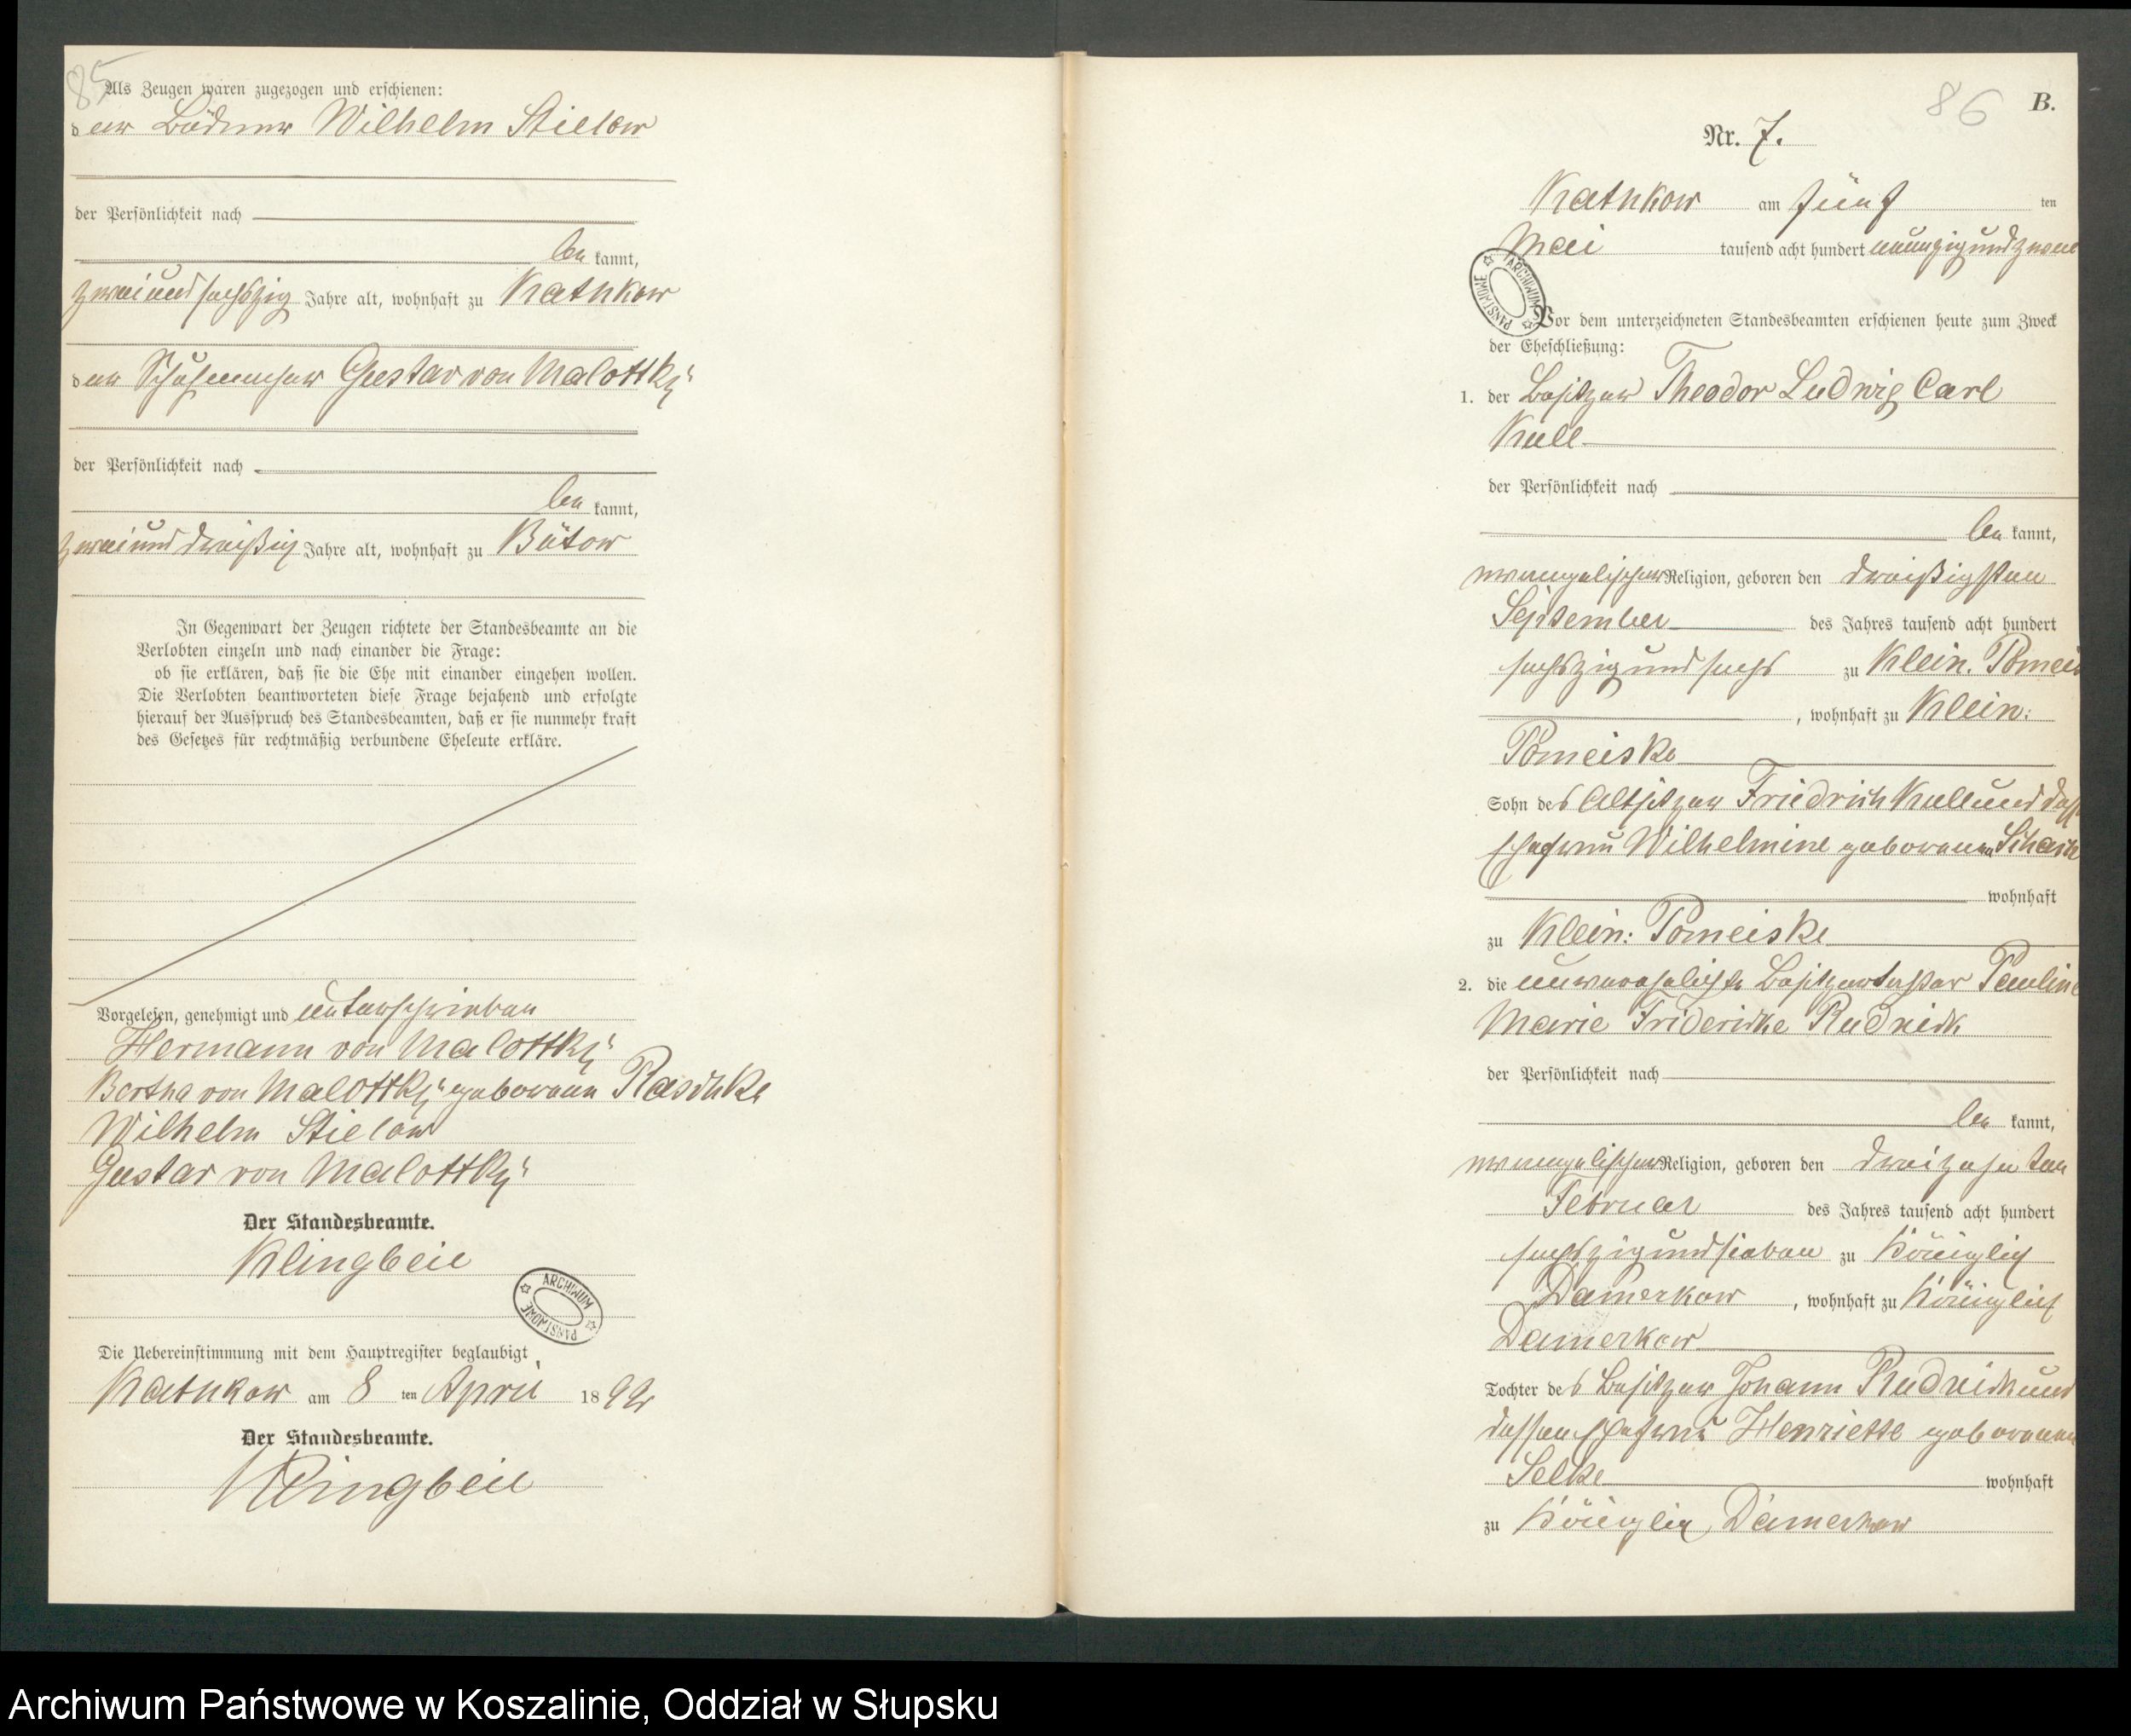 85
Als Zeugen waren zugezogen und erschienen:
der Büdner Wilhelm Stielow
der Persönlichkeit nach
be kannt,
zweiundsechszig Jahre alt, wohnhaft zu Kathkow
der Schuhmacher Gustav von Malottky
der Persönlichkeit nach
be kannt,
zweiunddreißig Jahre alt, wohnhaft zu Bütow
In Gegenwart der Zeugen richtete der Standesbeamte an die
Verlobten einzeln und nach einander die Frage:
ob sie erklären, daß sie die Ehe mit einander eingehen wollen.
Die Verlobten beantworteten diese Frage bejahend und erfolgte
hierauf der Ausspruch des Standesbeamten, daß er sie nunmehr kraft
des Gesetzes für rechtmäßig verbundene Eheleute erkläre.
Vorgelesen, genehmigt und unterschrieben
Hermann von Malottky
Bertha von Malottky geborene Raschke
Wilhelm Stielow
Gustav von Malottky
Der Standesbeamte.
Klingbeil
ARCHIWUM PAŃSTWOWE
Die Uebereinstimmung mit dem Hauptregister beglaubigt
Kathkow am 8 ten April 1892
Der Standesbeamte.
Klingbeil
86
B.
Nr. 7.
Kathkow am fünf ten
Mai tausend acht hundert neunzigundzwei
ARCHIWUM PAŃSTWOWE
Vor dem unterzeichneten Standesbeamten erschienen heute zum Zweck
der Eheschließung:
1. der Besitzer Theodor Ludwig Carl
Kull
der Persönlichkeit nach
be kannt,
evangelischer Religion, geboren den dreißigsten
September des Jahres tausend acht hundert
sechszigundsechs zu Klein: Pomeis
, wohnhaft zu Klein:
Pomeiske
Sohn des Altsitzer Friedrich Kull und dess
Ehefrau Wilhelmine geborenen
wohnhaft
zu Klein: Pomeiske
2. die unverehelichte Besitzertochter Pauline
Marie Friderike Rudnick
der Persönlichkeit nach
be kannt,
evangelischer Religion, geboren den dreizehn ten
Februar des Jahres tausend acht hundert
sechszigundsieben zu Königlich
Damerkow , wohnhaft zu Königlich
Damerkow
Tochter des Besitzer Johann Rudnick und
dessen Ehefrau Henriette geborenen
Selke wohnhaft
zu Königlich Damerkow
Archiwum Państwowe w Koszalinie, Oddział w Słupsku